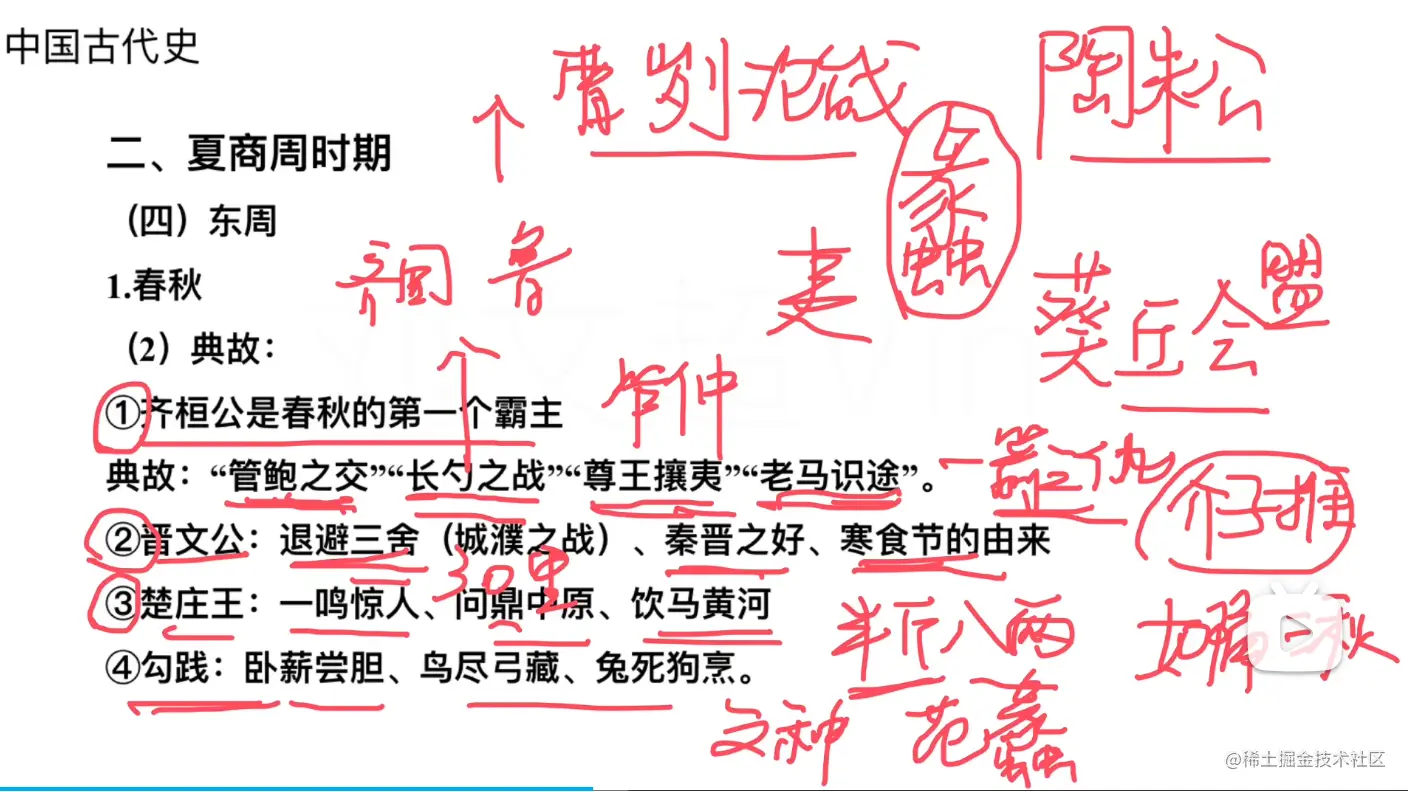 中国古代史
曹刿论战
陶朱公
蠡
二、夏商周时期
（四）东周
1.春秋
齐国 鲁
夷
葵丘会盟
（2）典故：
①齐桓公是春秋的第一个霸主
管仲
典故：“管鲍之交”“长勺之战”“尊王攘夷”“老马识途”。
一箭之仇
介子推
②晋文公：退避三舍（城濮之战）、秦晋之好、寒食节的由来
30里
③楚庄王：一鸣惊人、问鼎中原、饮马黄河
半斤八两
④勾践：卧薪尝胆、鸟尽弓藏、兔死狗烹。
文种 范蠡
@稀土掘金技术社区